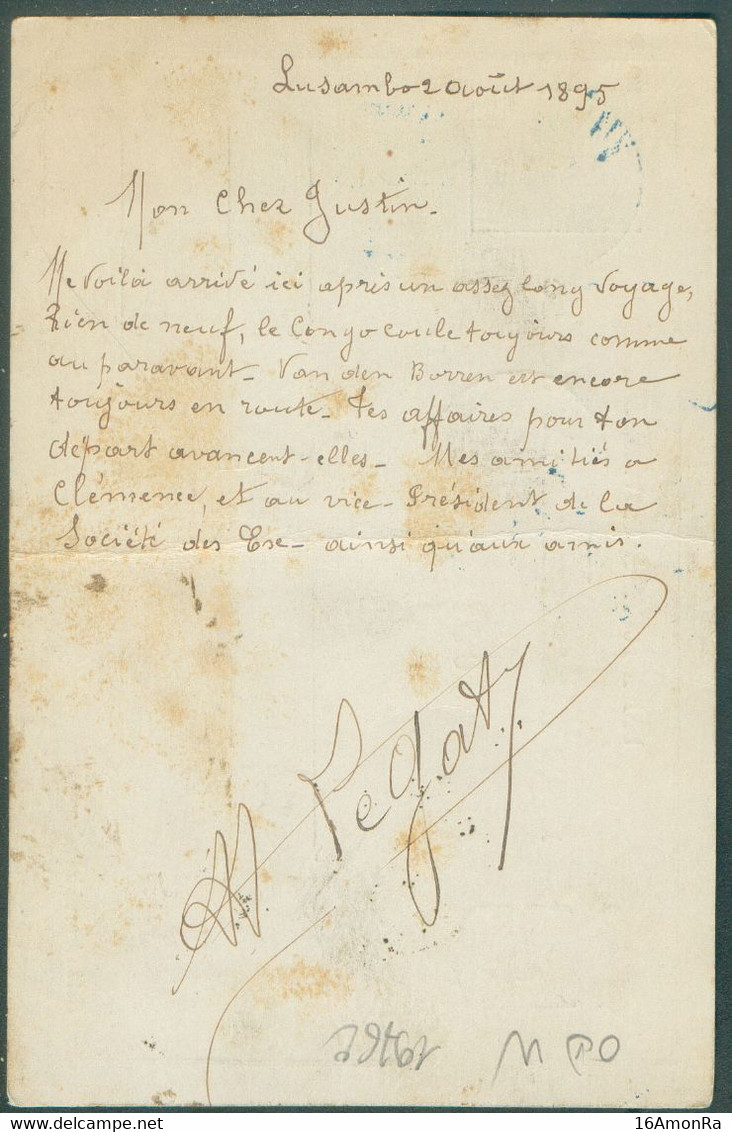 Lusambo 2 Août 1895
Mon Cher Justin.
Me voilà arrivé ici après un assez long voyage,
Rien de neuf, le Congo coule toujours comme
au paravant. Van den Borren est encore
toujours en route. Tes affaires pour ton
départ avancent-elles. Mes amitiés a
Clémence, et au vice-Président de la
Société des Exe- ainsi qu'aux amis.
16AmonRa